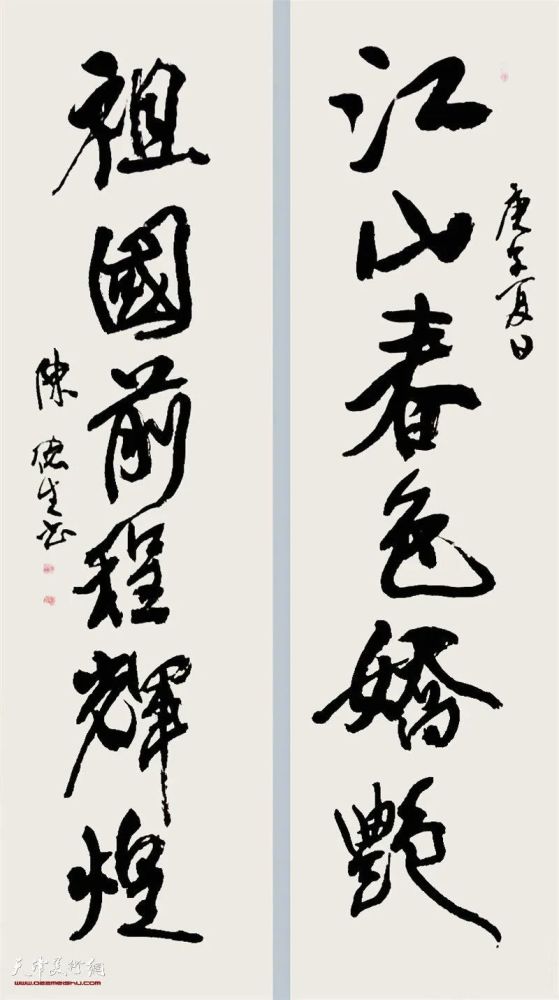 江山春色嬌艷
庚子夏日
祖國前程輝煌
陳德生書
天津美術網
www.022meishu.com